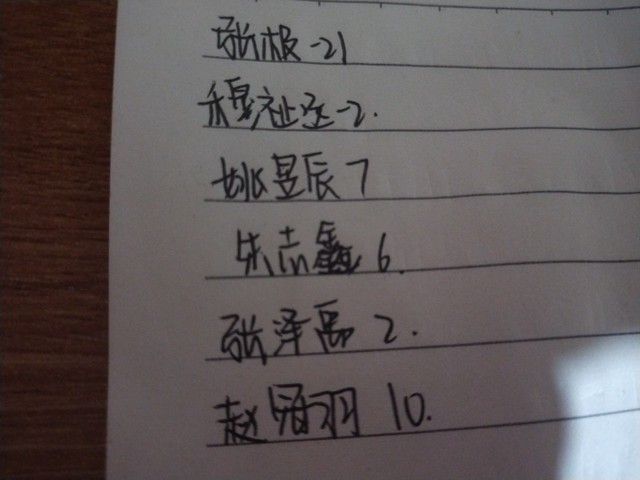 张极-21
穆祉丞-2.
姚昱辰7
朱志鑫6.
张泽禹2.
赵冠羽10.